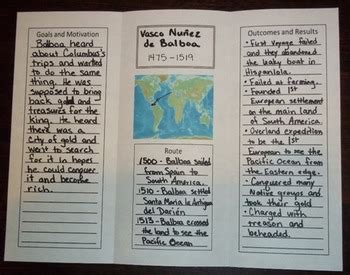 Goals and Motivation
Balboa heard
about Columbus's
trips and wanted
to do the same
thing. He was
supposed to bring
back gold and
treasures for the
king. He heard
there was a
city of gold and
went to search
for it in hopes
he could conquer
it and become
rich.
Vasco Nuñez
de Balboa
1475-1519
Route
1500 - Balboa sailed
from Spain to
South America.
1510 - Balboa settled
Santa Maria la Antigua
del Darién
1513 - Balboa crossed
the land to see the
Pacific Ocean
Outcomes and Results
• First voyage failed
and they abandoned
the leaky boat in
Hispaniola.
• Failed as farming.
• Founded 1st
European settlement
on the main land
of South America.
• Overland expedition
to be the 1st
European to see the
Pacific Ocean from
the Eastern edge.
• Conquered many
Native groups and
took their gold
• Charged with
treason and
beheaded.